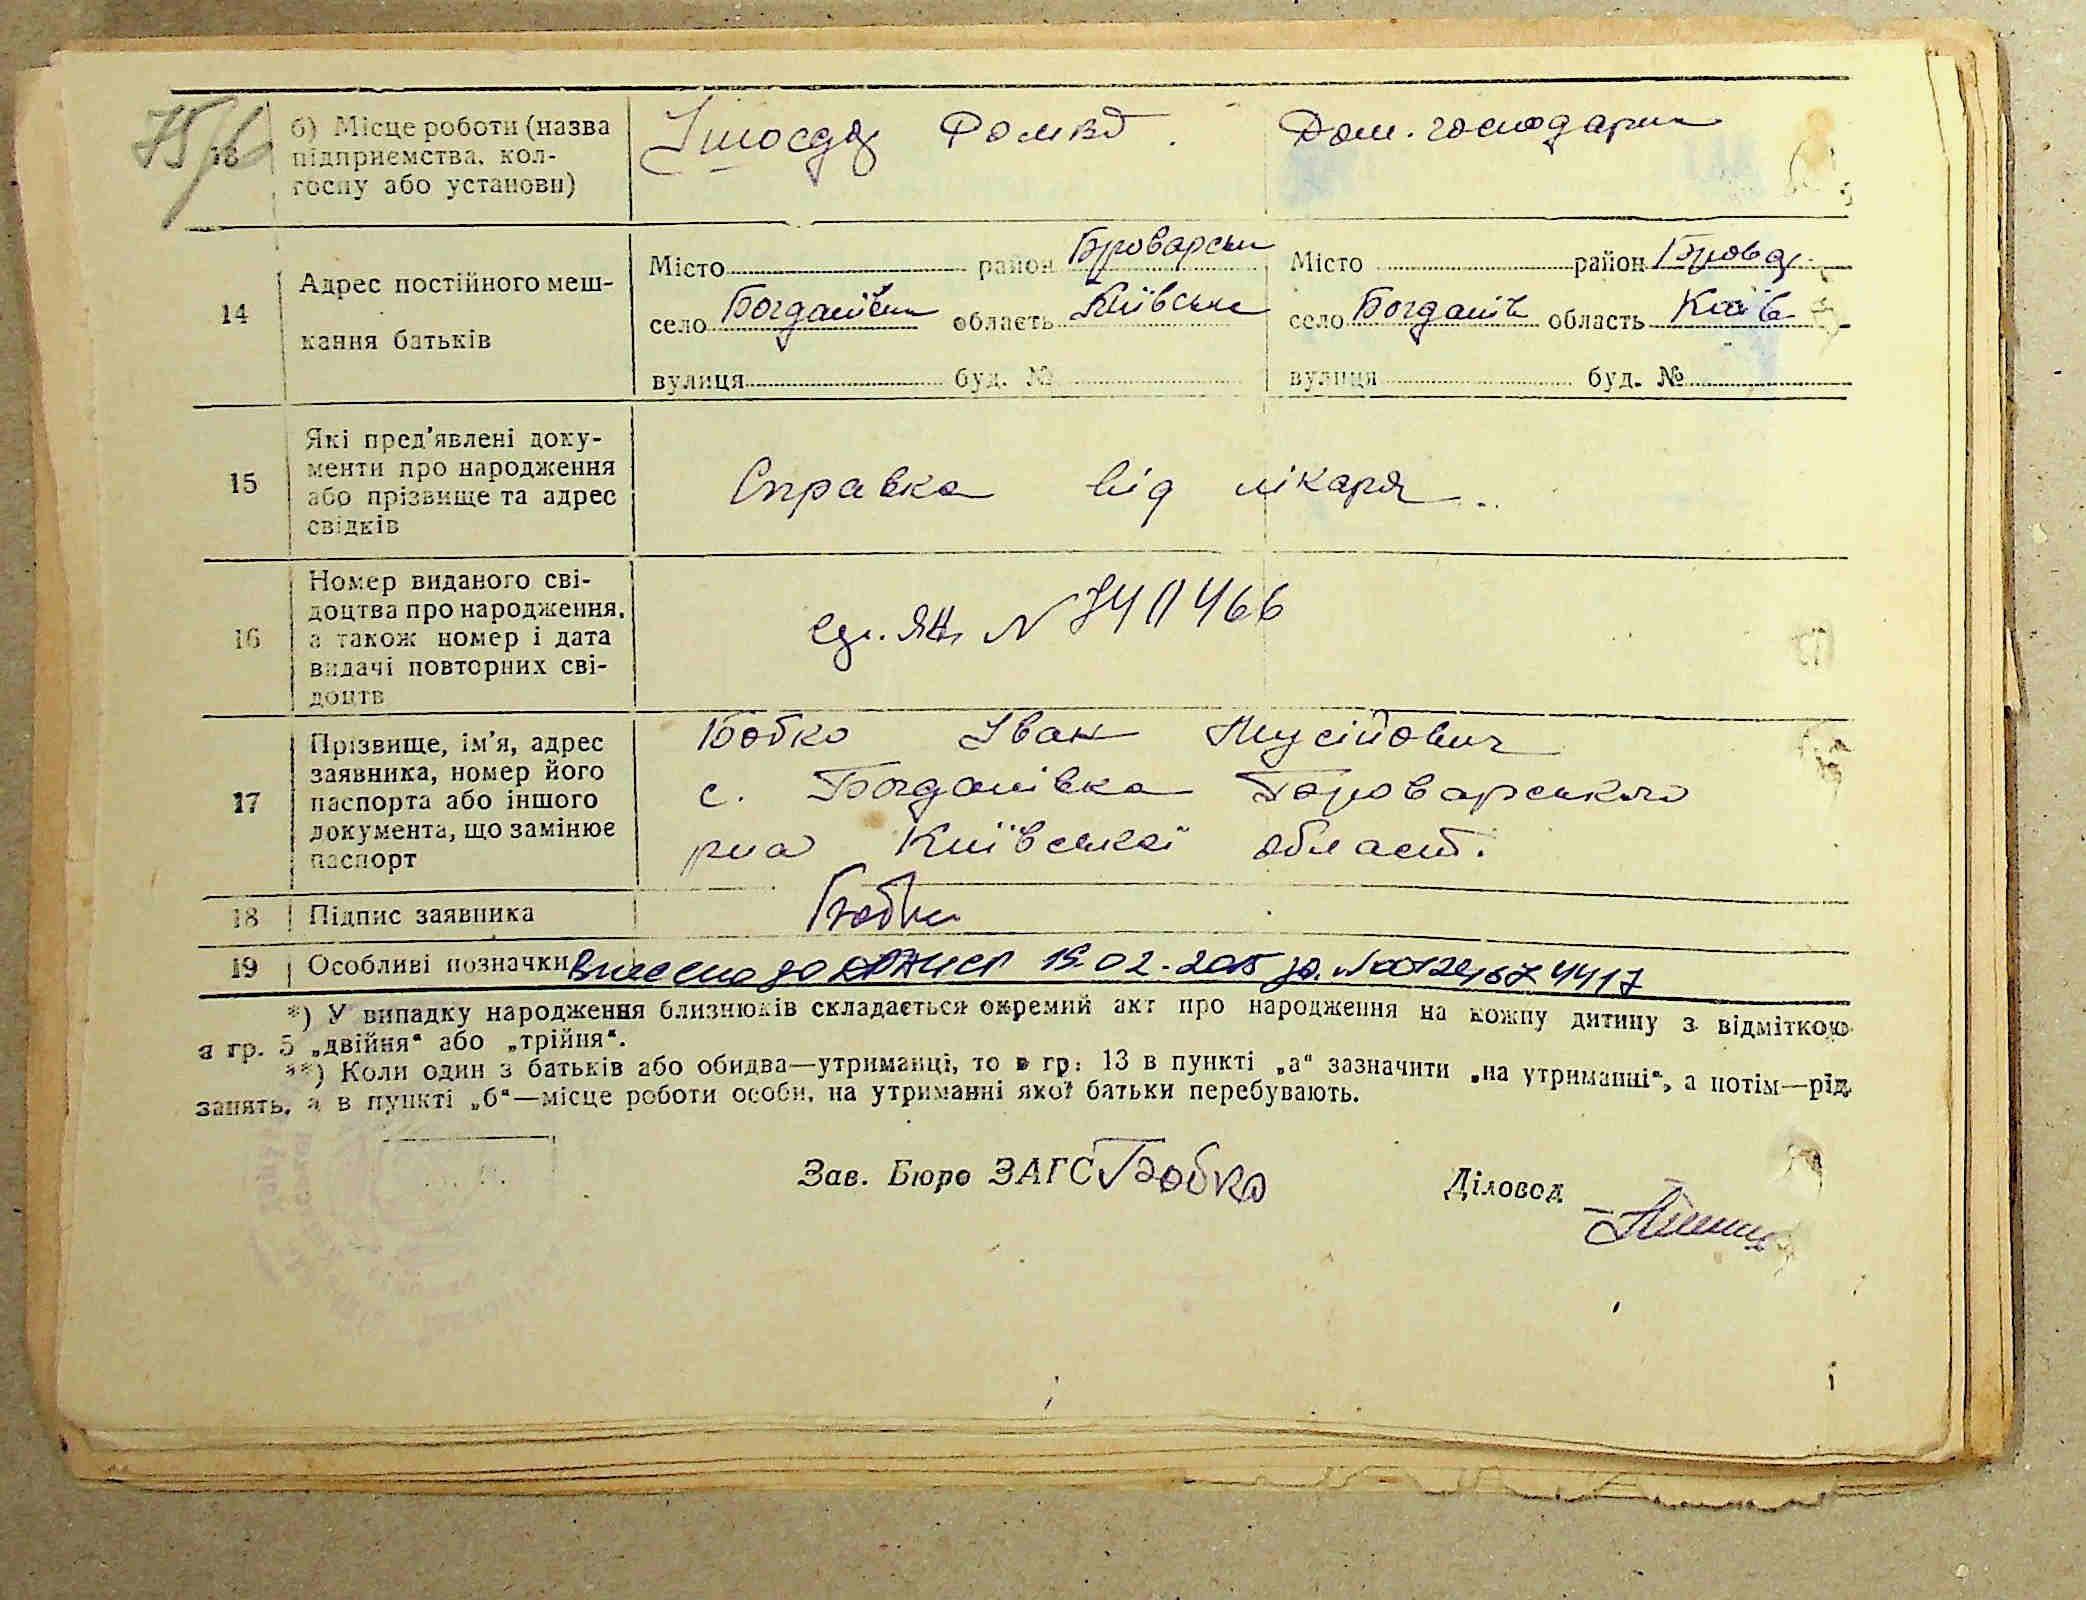 75/6
13
б) Місце роботи (назва
підприємства, кол-
госпу або установи)
Дом. господарка
14
Адрес постійного меш-
кання батьків
Місто район Броварськ
село Богданівка область Київська
вулиця буд. №
Місто район Бровар.
село Богданів область Київ
вулиця буд. №
15
Які пред'явлені доку-
менти про народження
або прізвище та адрес
свідків
Справка від лікаря.
16
Номер виданого сві-
доцтва про народження,
а також номер і дата
видачі повторних сві-
доцтв
17
Прізвище, ім'я, адрес
заявника, номер його
паспорта або іншого
документа, що замінює
паспорт
Бобко Іван Мусійович
с. Богданівка Броварського
р-на Київської області.
18
Підпис заявника
Бобко
19
Особливі позначки Внесено до 02.2015
*) У випадку народження близнюків складається окремий акт про народження на кожну дитину з відміткою
в гр. 5 „двійня“ або „трійня“.
**) Коли один з батьків або обидва—утриманці, то в гр. 13 в пункті „а“ зазначити „на утриманні“, а потім—рід
занять, а в пункті „б“—місце роботи особи, на утриманні якої батьки перебувають.
Зав. Бюро ЗАГС Бобко
Діловод